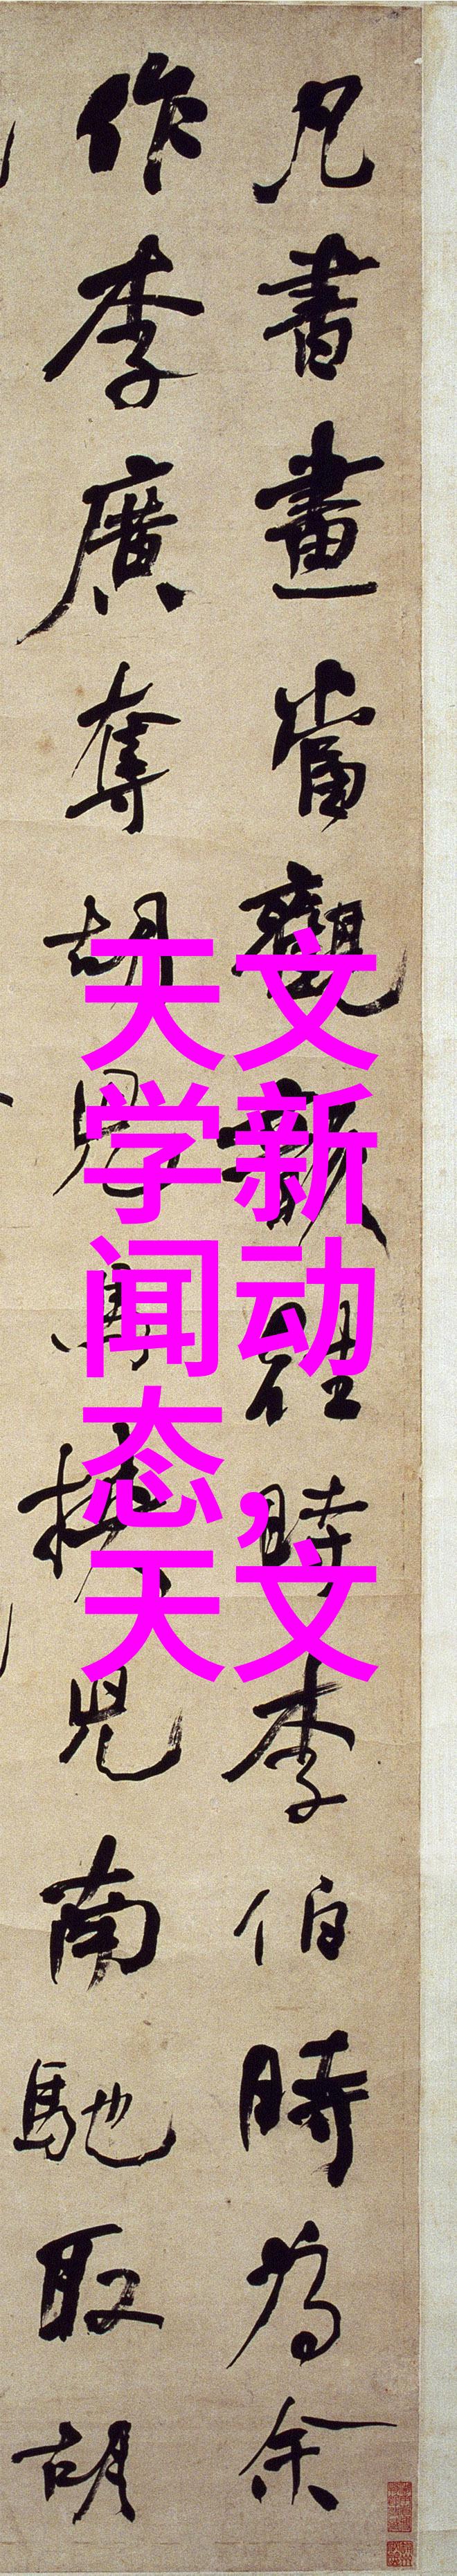 凡書畫當觀韻往時李伯時為余
作李廣奪胡兒馬挾兒南馳取胡
天文
学新
闻动
态,
天文